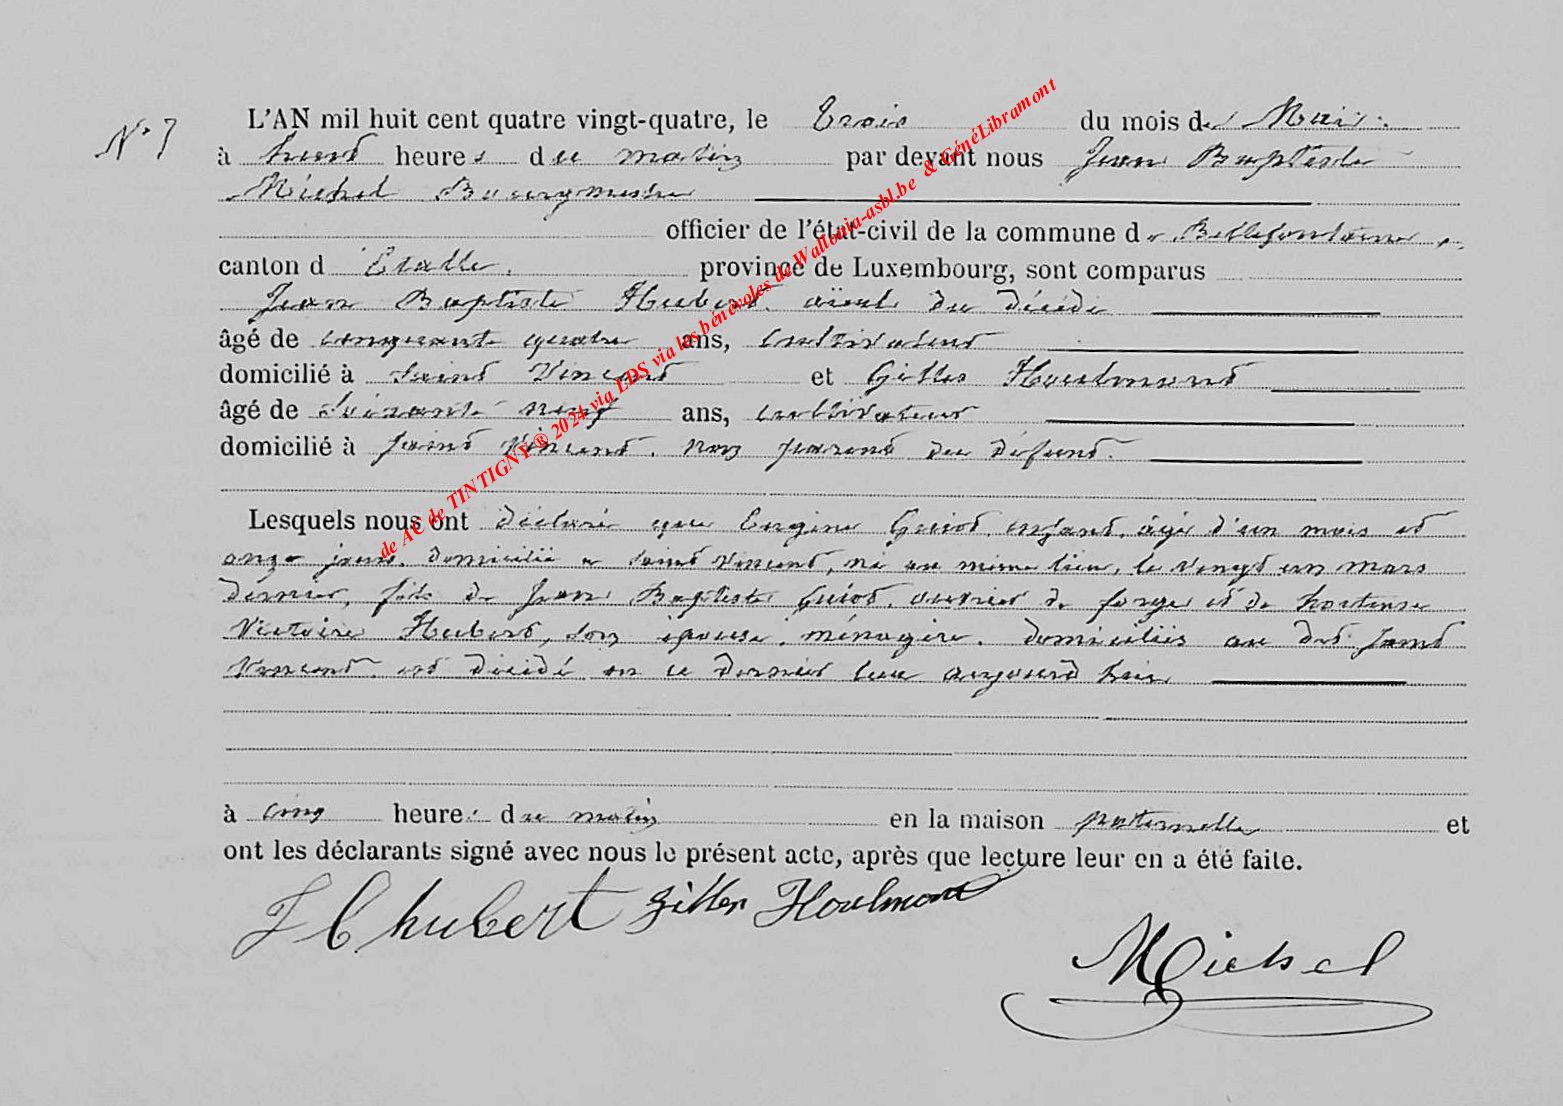 N° 7
L'AN mil huit cent quatre vingt-quatre, le trois du mois de Mai
à huit heures du matin par devant nous Jean Baptiste
Michel Bourgmestre
officier de l'état-civil de la commune de Bellefontaine,
canton d'Etalle, province de Luxembourg, sont comparus
Jean Baptiste Hubert, aïeul du décédé
âgé de cinquante quatre ans, cultivateur
domicilié à Saint Vincent et Gilles Houlmont
âgé de soixante neuf ans, cultivateur
domicilié à Saint Vincent, non parent du défunt.
Lesquels nous ont déclaré que Eugène Guiot, enfant, âgé d'un mois et
onze jours, domicilié à Saint Vincent, né au même lieu, le vingt un mars
dernier, fils de Jean Baptiste Guiot, ouvrier de forges et de hortense
Victoire Hubert, son épouse, ménagère, domiciliés au dit Saint
Vincent, est décédé en ce dernier lieu aujourd'hui
à cinq heures du matin en la maison paternelle et
ont les déclarants signé avec nous le présent acte, après que lecture leur en a été faite.
J B hubert Gilles Houlmont
Michel
de AC de TINTIGNY® 2024 via LDS via les bénévoles de Wallonia-asbl.be & GénéLibramont